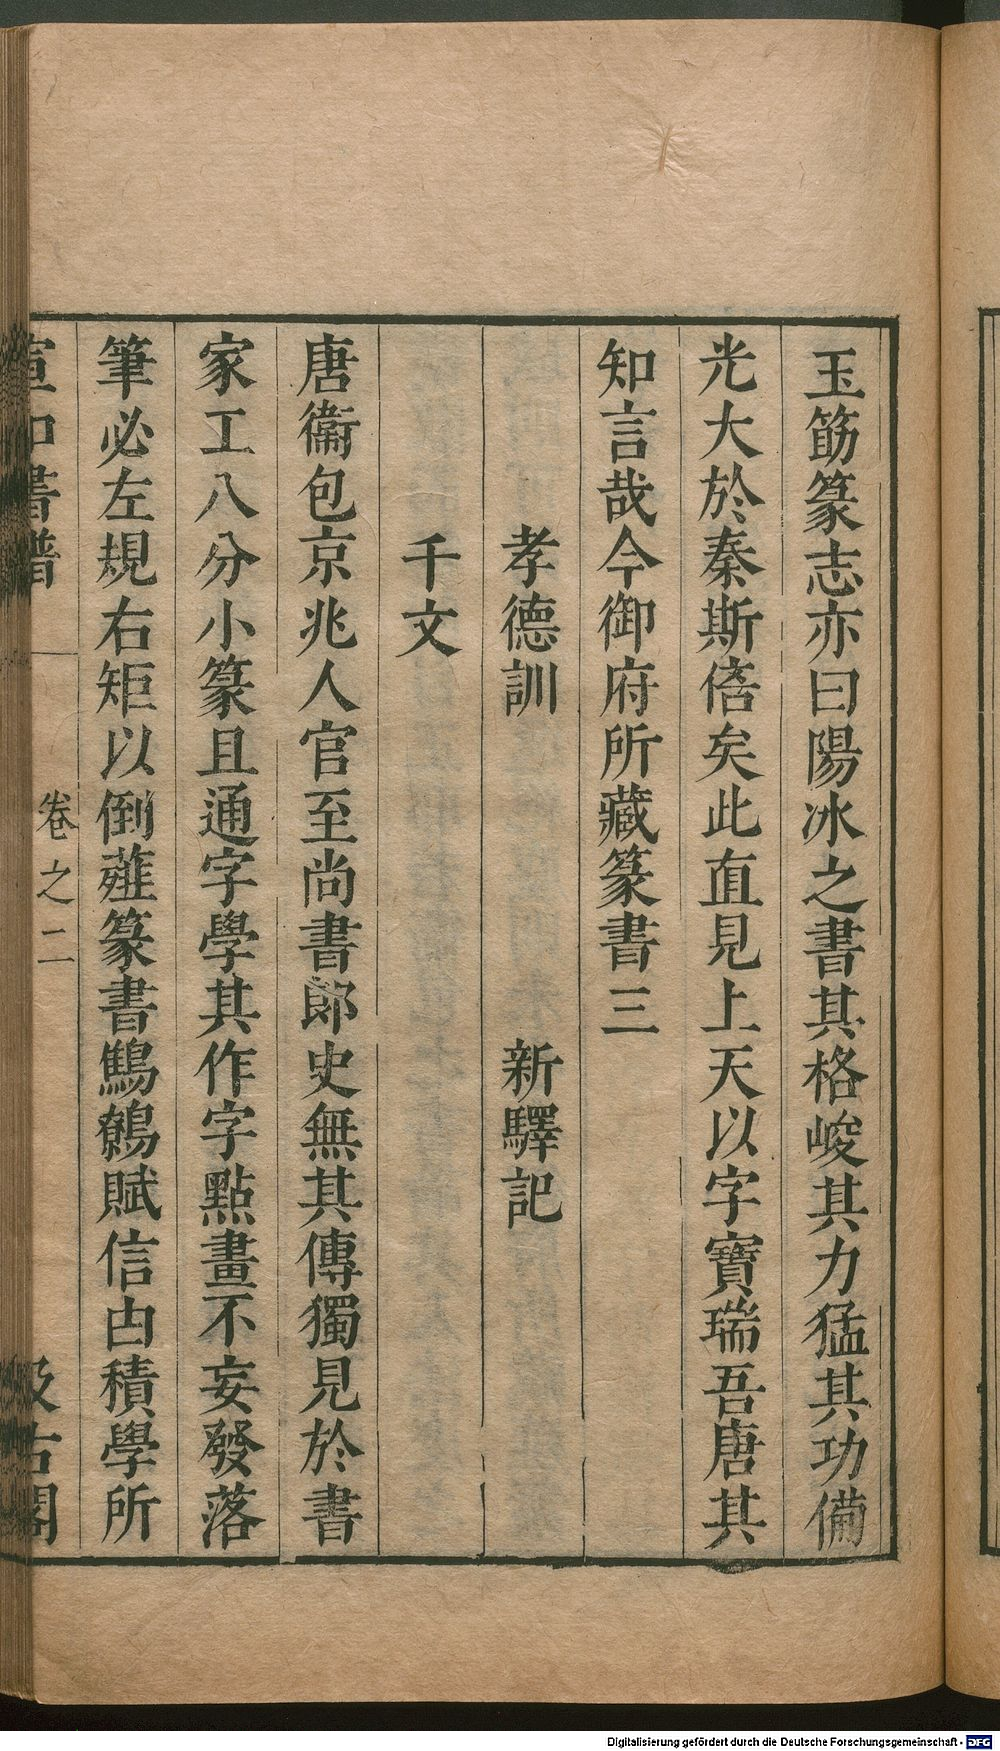 玉筯篆志亦曰陽冰之書其格峻其力猛其功備
光大於秦斯倍矣此直見上天以字寶瑞吾唐其
知言哉今御府所藏篆書三
孝德訓　新驛記
千文
唐衞包京兆人官至尚書郞史無其傳獨見於書
家工八分小篆且通字學其作字點畫不妄發落
筆必左規右矩以倒薤篆書鷦鷯賦信由積學所
宣和書譜　卷之二　汲古閣
Digitalisierung gefördert durch die Deutsche Forschungsgemeinschaft - DFG